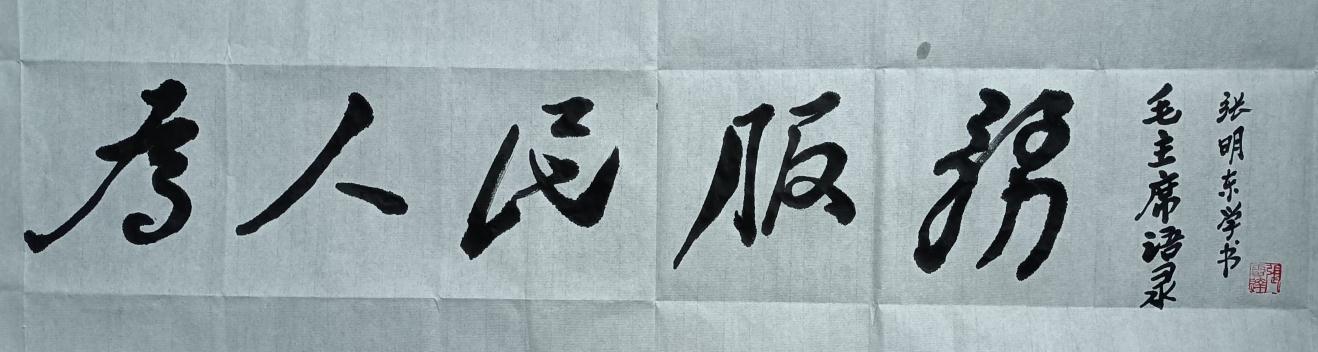 為人民服務
毛主席语录
张明东学书